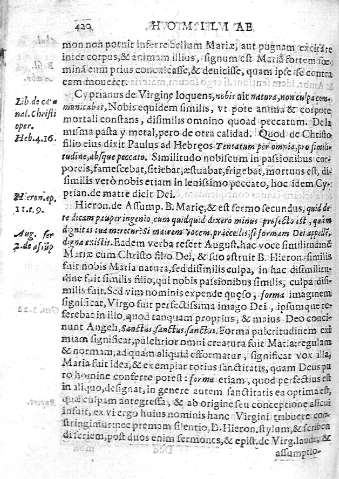 420 HOMILIAE
mon non potuit inferre bellum Mariæ, aut pugnam excitare
inter corpus, & animam illius, signum est Mariã fortem fœ-
minã eum prius concutiasse, & deuicisse, quam ipse isse contra
eam moueret.
Lib. de cardinal. Christi oper.
Cyprianus de Virgine loquens, nobis ait natura, non culpa com-
municabat, Nobis equidem similis, vt pote anima & corpore
mortali constans, disimilis omnino quoad peccatum. De la
misma pasta y metal, pero de otra calidad. Quod de Christo
Heb. 4. 16.
filio eius dixit Paulus ad Hebręos Tentatum per omnia, pro simili-
tudine, absque peccato. Similitudo nobiscum in passionibus cor-
poreis, famescebat, sitiebat, æstuabat, frigebat, mortuus est, di-
similis verò nobis etiam in lenissimo peccato, hoc idem Cy-
prian. de matre dicit Dei.
Hieron. ep. 11. t. 9.
Hieron. de Assump. B. Marię, & est sermo secundus, quid de
te dicam pauper ingenio, cum quidquid dixero minus profecto est, quàm
dignitas tua
Aug. ser 2. de assũp
digna existis. Eadem verba refert August. hac voce similitudinẽ
Mariæ cum Christo filio Dei, & suo astruit B. Hieron. similis
fuit nobis Maria natura, sed disimilis culpa, in hac disimilitu-
dine fait similis filio, qui nobis passionibus similis, culpa disi-
milis fuit. Sed vim nominis expende quęso, forma imaginem
significat, Virgo fuit perfectissima imago Dei, ipsumque re-
ferebat in illo, quod tanquam proprius, & maius Deo conci-
nunt Angeli, Sanctus sanctus sanctus. Forma pulchritudinem exi-
miam significat, pulchrior omni creatura fuit Maria: regulam
& normam, ad quam aliquid efformatur, significat vox illa,
Maria fuit idea, & exemplar totius sanctitatis, quam Deus pu-
ro homine conferre potest: forma etiam, quod perfectius est
in aliquo, designat, in genere autem sanctitatis ea optima est,
quæ culpam antegressa, & ab origine seu conceptione alicui
insuit, ex vi ergo huius nominis hanc Virgini tribuere con-
stringimur nec premam silentio, D. Hieron. stylum, & scriben
di seriem, post duos enim sermones, & epist. de Virg. laudi, &
assumptio